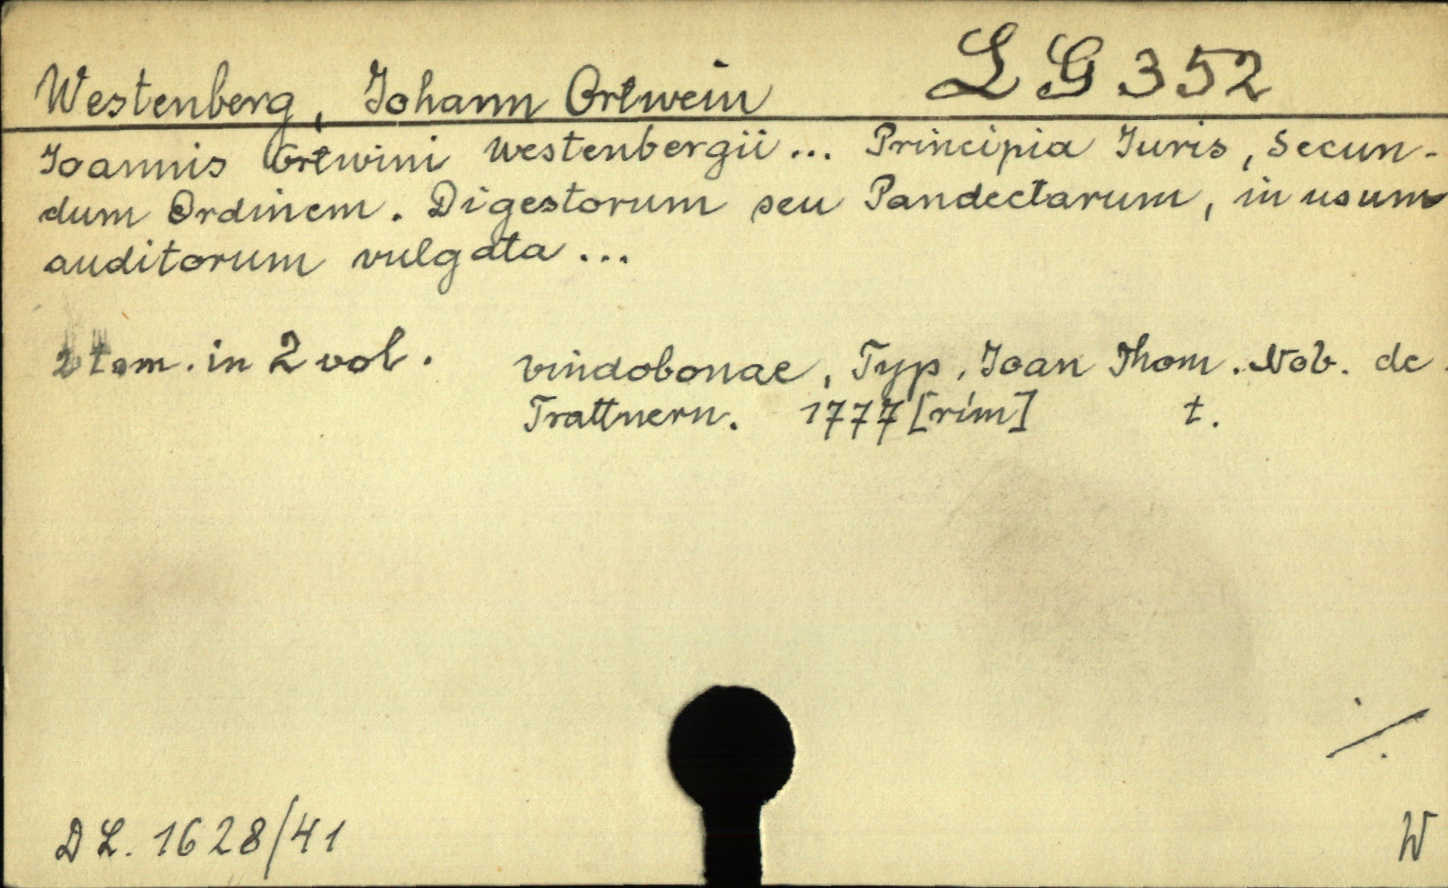 Westenberg, Johann Ortwein LG 352
Joannis Ortwini Westenbergii ... Principia Juris, Secun-
dum Ordinem. Digestorum seu Pandectarum, in usum
auditorum vulgata ...
2 tom. in 2 vol. Vindobonae, Typ. Joan Thom. Nob. de
Trattnern. 1777 [rím] t.
./.
DL. 1628/41 W